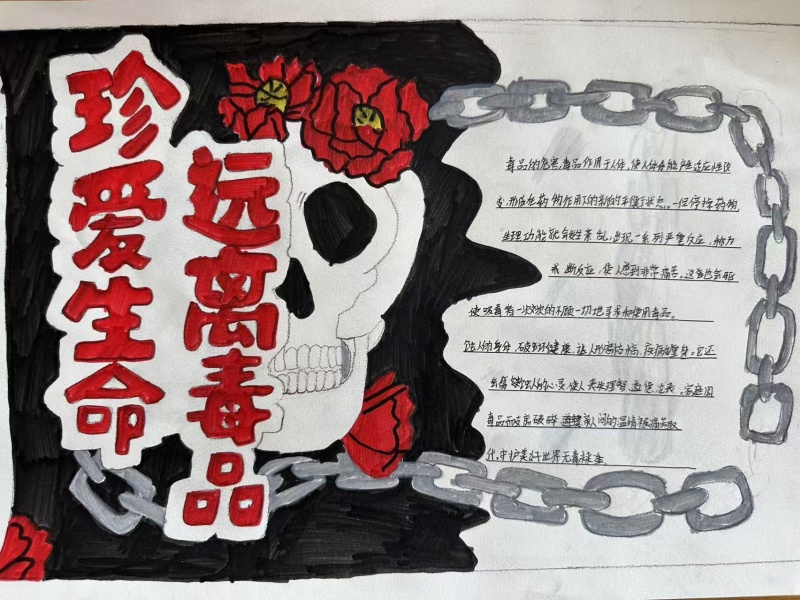 珍爱生命
远离毒品
毒品的危害,毒品作用于人体,使人体会能产生适应性改
变,形成在药物作用下的新的平衡状态。一但停掉药物,
生理功能就会发生紊乱,出现一系列严重反应,称为
戒断反应,使人感到非常痛苦,这也会驱
使吸毒者一次次的不顾一切地寻求和使用毒品。
蚀人的身分,破坏健康,让人形,疾病缠身。它还
人的心灵,使人丧失理智、道德,家庭因
毒品而支离破碎,人间的温情被
代,守护美好世界无毒